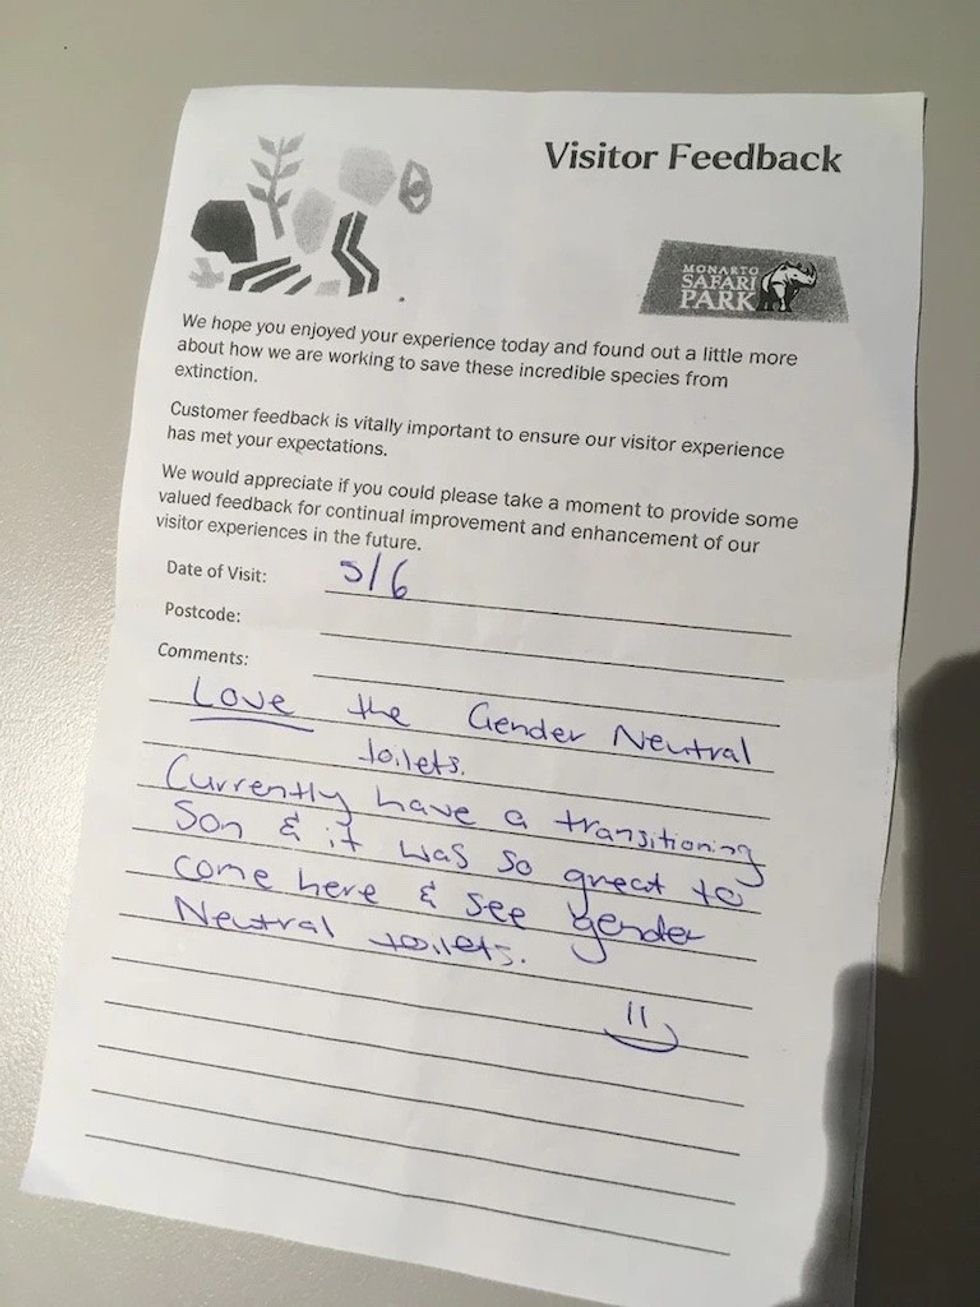 Visitor Feedback
MONARTO
SAFARI
PARK
We hope you enjoyed your experience today and found out a little more
about how we are working to save these incredible species from
extinction.
Customer feedback is vitally important to ensure our visitor experience
has met your expectations.
We would appreciate if you could please take a moment to provide some
valued feedback for continual improvement and enhancement of our
visitor experiences in the future.
Date of Visit: 5/6
Postcode:
Comments:
Love the Gender Neutral
toilets.
Currently have a transitioning
Son & it was so great to
come here & see gender
Neutral toilets.